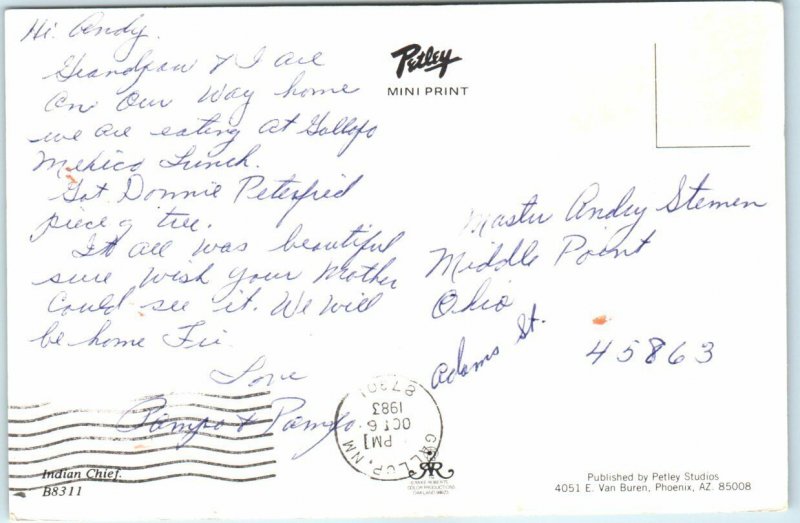 Hi Andy.
Grandpaw & I are
on our way home
we are eating at Gollopo
Mexico Lunch.
Got Donnie Petesfied
piece of tree.
It all was beautiful
sure wish your Mother
Could see it. We will
be home Fri.
Love
Pampo & Pampo.
Indian Chief.
B8311
Petley
MINI PRINT
Master Andy Stemen
Middle Point
Ohio
Adams St.
45863
GALLUP, NM
PM
OCT 6
1983
87301
Published by Petley Studios
4051 E. Van Buren, Phoenix, AZ. 85008